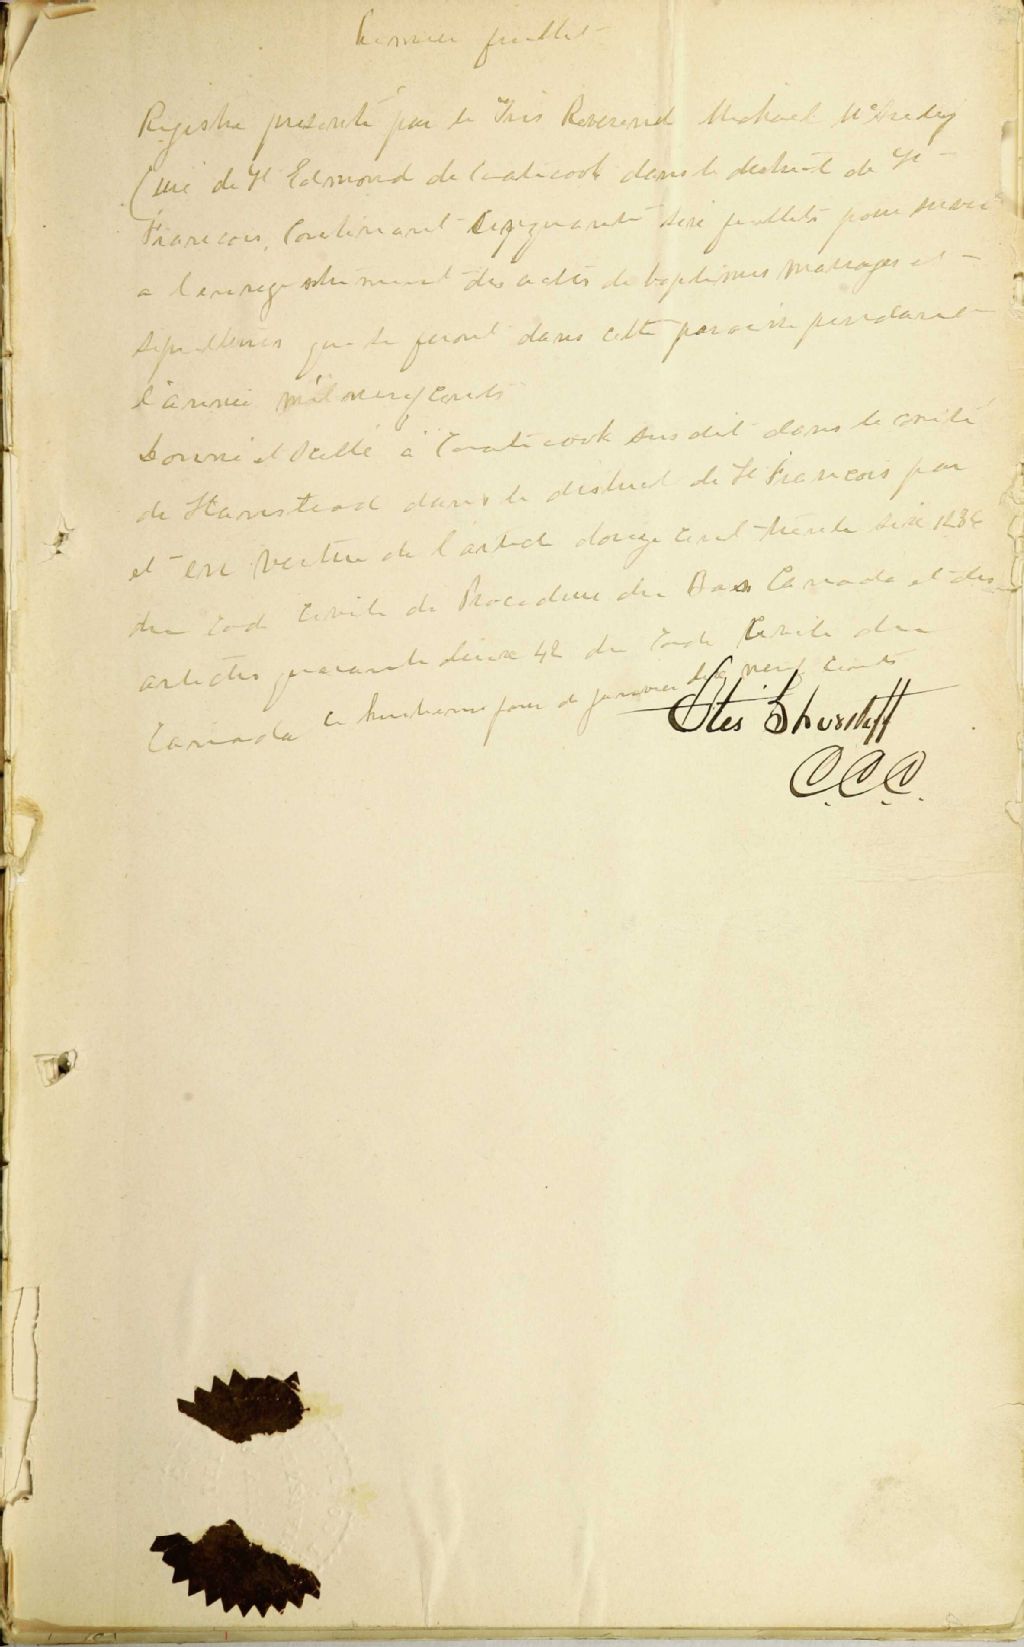 Premier feuillet
Registre presenté par le Tris Reverend Michael McAuley
Curé de St Edmond de Coaticook dans le district de St
Francois, Contenant Cinquante sixe feuillets pour servir
a l'enregestrement des actes de baptêmes mariages et
sepultures que se feront dans cette paroisse pendant
l'année mil neuf cents
Donné et Scellé à Coaticook susdit dans le comté
de Stanstead dans le district de St Francois par
et en vertue de l'article douze cent trente sixe 1236
du Code Civile de Procedure du Bas Canada et des
articles quarante deuxe 42 du Code Civile du
Canada ce huitieme jour de janvier dix neuf cents
Otis Shurtleff
C.C.C.